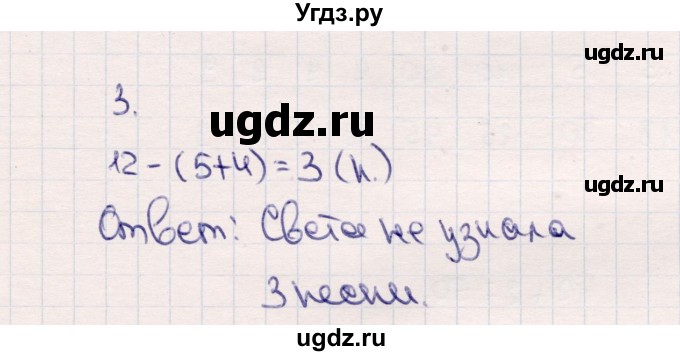 Угдз.ру
ugdz.ru
3.
ugdz.ru
12-(5+4)=3 (п.)
Ответ: Света не узнала
3 песни.
ugdz.ru
ugdz.ru